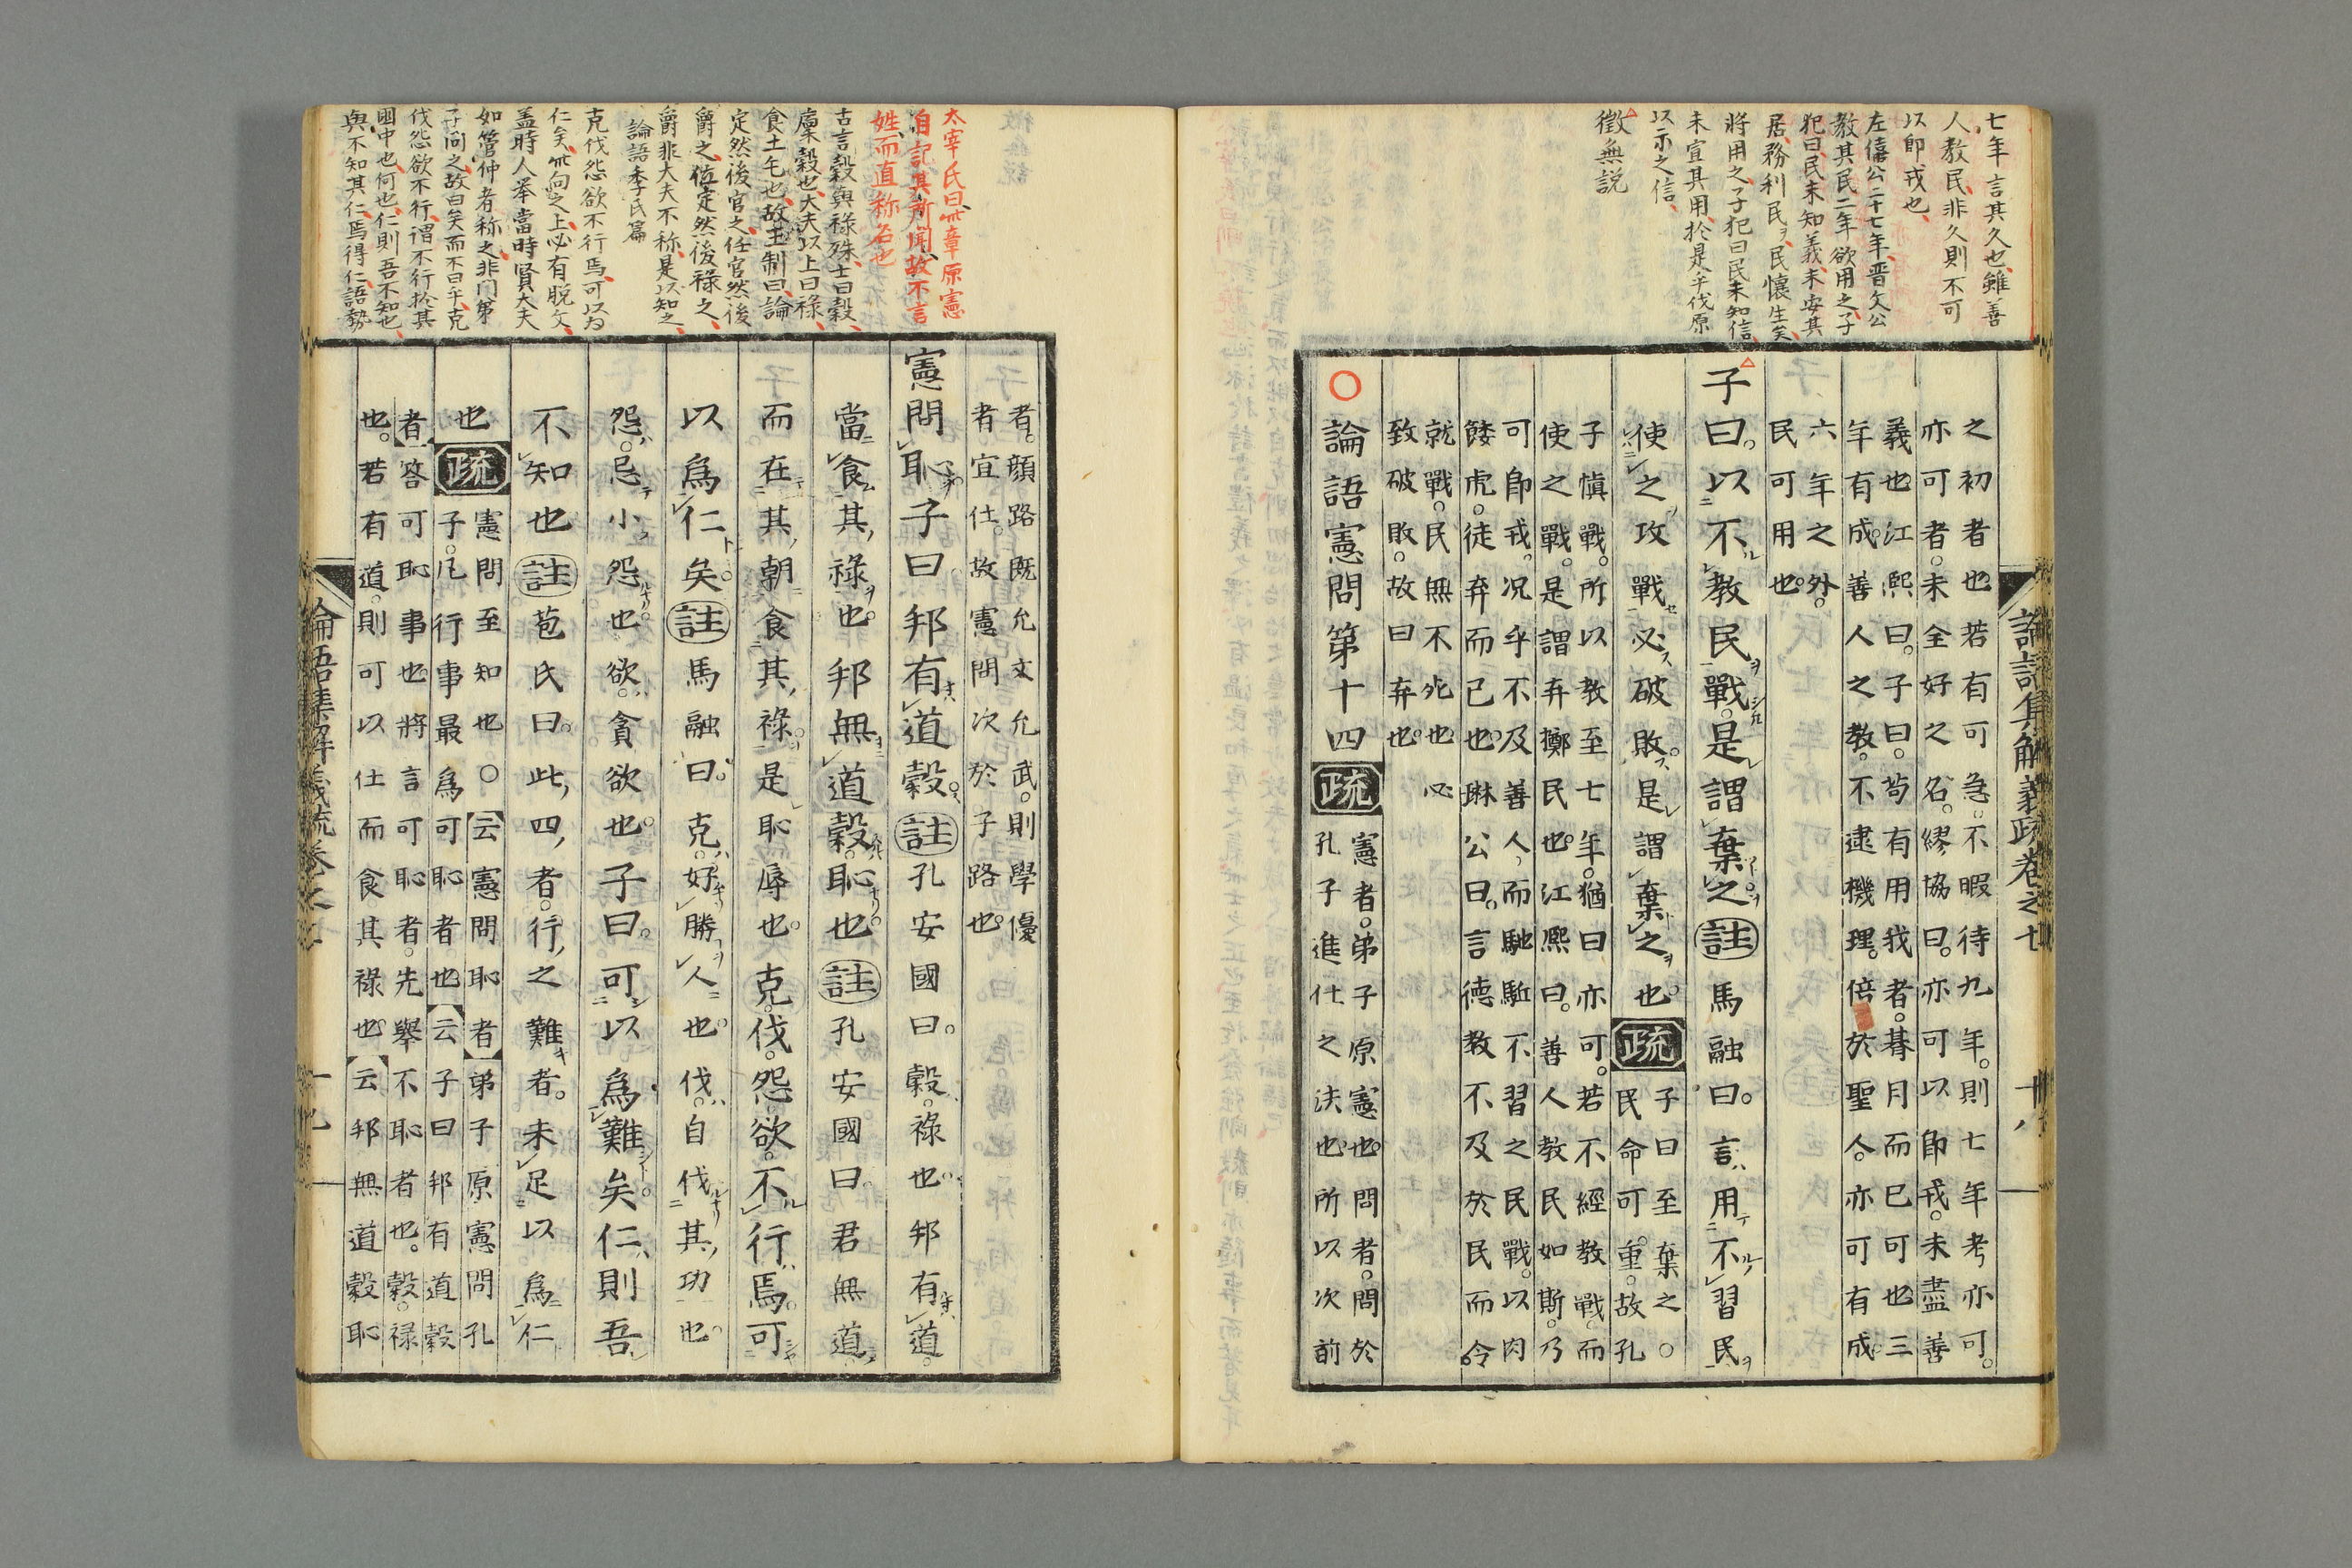 七年言其久也雖善
人教民非久則不可
以即戎也
左僖公二十七年晋文公
教其民二年欲用之子
犯曰民未知義未安其
居務利民ヲ民懐生矣
將用之子犯曰民未知信
未宣其用於是乎伐原
以示之信
徵無説
論語集解義疏卷之七
十八
之初者也若有可急不暇待九年則七年考亦可
亦可者未全好之名繆協曰亦可以即戎未盡善
義也江熙曰子曰苟有用我者朞月而已可也三
年有成善人之教不逮機理倍於聖人亦可有成
六年之外
民可用也
子曰以不教民戰是謂棄之註馬融曰言用不習民
使之攻戰必破敗是謂棄之也疏子曰至棄之○
民命可重故孔
子慎戰所以教至七年猶曰亦可若不經教戰而
使之戰是謂弃擲民也江熈曰善人教民如斯乃
可即戎况乎不及善人而馳駈不習之民戰以肉
餧虎徒弃而已也琳公曰言德教不及於民而令
就戰民無不死也必
致破敗故曰弃也
論語憲問第十四疏憲者弟子原憲也問者問於
孔子進仕之法也所以次前
太宰氏曰此章原憲
自記其所聞故不言
姓而直称名也
古言穀與禄殊士曰穀
廩穀也大夫以上曰禄
食土乇也故王制曰論
定然後官之任官然後
爵之位定然後禄之
爵非大夫不称是以知之
論語季氏篇
克伐怨欲不行焉可以為
仁矣此向之上必有脱文
盖時人举當時賢大夫
如管仲者称之非门弟
子问之故曰矣而不曰乎克
伐怨欲不行謂不行於其
國中也何也仁則吾不知也
與不知其仁焉得仁語勢
者顔路既允文允武則學優
者宜仕故憲問次於子路也
憲問恥子曰邦有道穀註孔安國曰穀禄也邦有道
當食其禄也邦無道穀恥也註孔安國曰君無道
而在其朝食其禄是恥辱也克伐怨欲不行焉可
以爲仁矣註馬融曰克好勝人也伐自伐其功也
怨忌小怨也欲貪欲也子曰可以爲難矣仁則吾
不知也註苞氏曰此四者行之難者未足以爲仁
也疏憲問至知也○云憲問恥者弟子原憲問孔
子凡行事最爲可恥者也云子曰邦有道穀
者答可恥事也將言可恥者先舉不恥者也穀禄
也若有道則可以仕而食其禄也云邦無道穀恥
論語集解義疏卷之七
十九